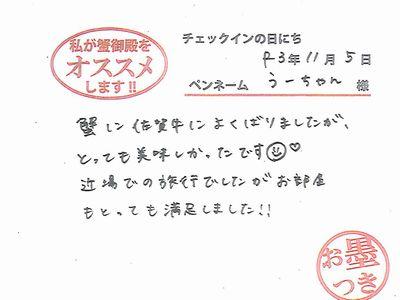 私が蟹御殿を
オススメ
します!!
チェックインの日にち
R3年11月5日
ペンネーム うーちゃん 様
蟹に佐賀牛によくばりましたが、
とっても美味しかったです☺♡
近場での旅行でしたがお部屋
もとっても満足しました!!
お墨
つき